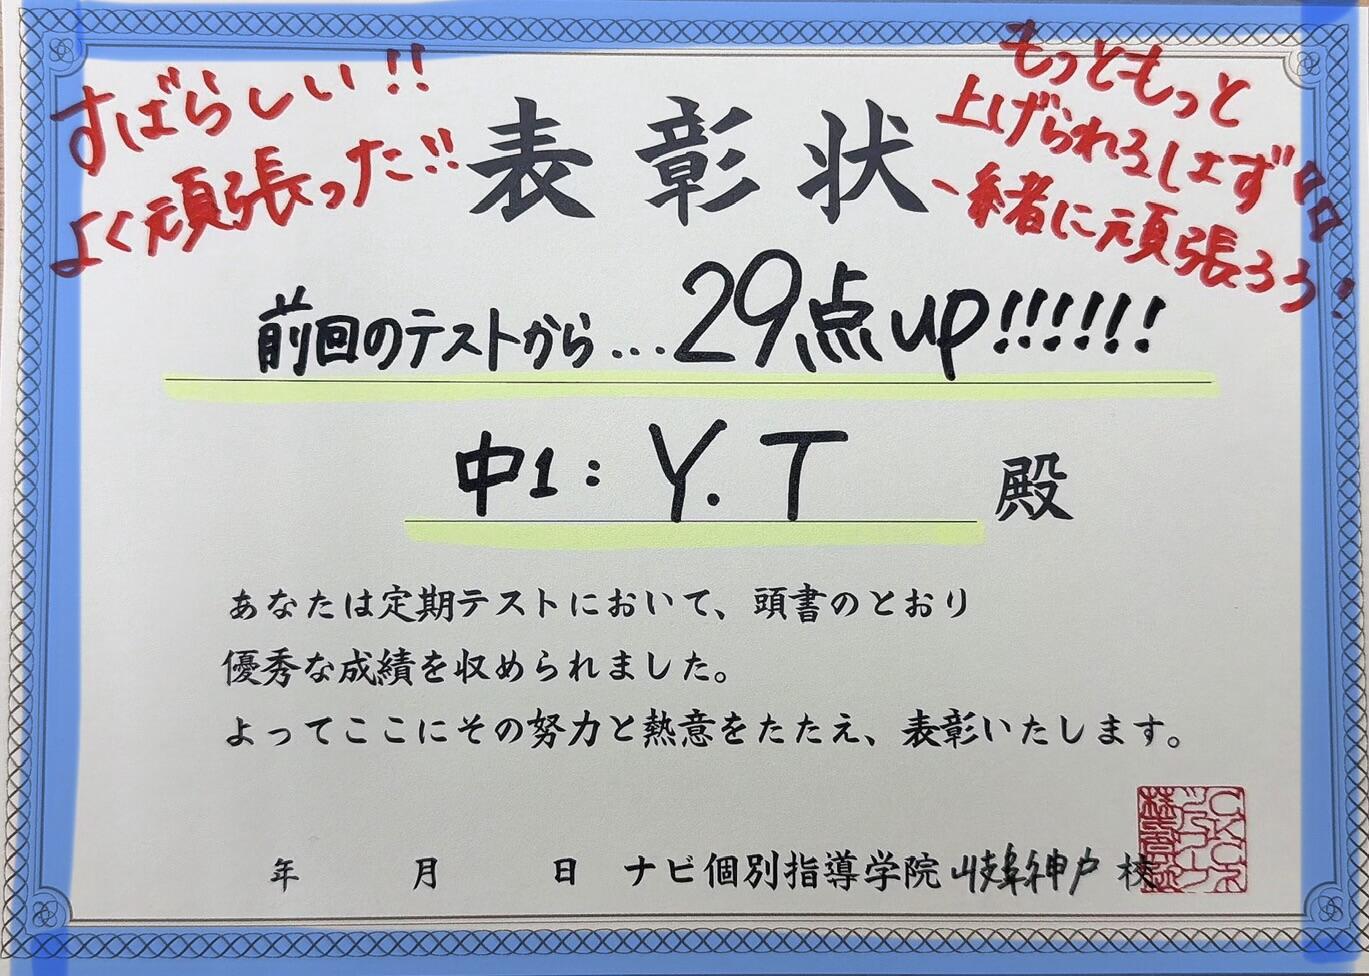 すばらしい!!
よく頑張った!!
もっともっと
上げられるはず!!
一緒に頑張ろう!
表彰状
前回のテストから...29点up!!!!!!
中1: Y.T 殿
あなたは定期テストにおいて、頭書のとおり
優秀な成績を収められました。
よってここにその努力と熱意をたたえ、表彰いたします。
年 月 日 ナビ個別指導学院 岐阜神戸 校